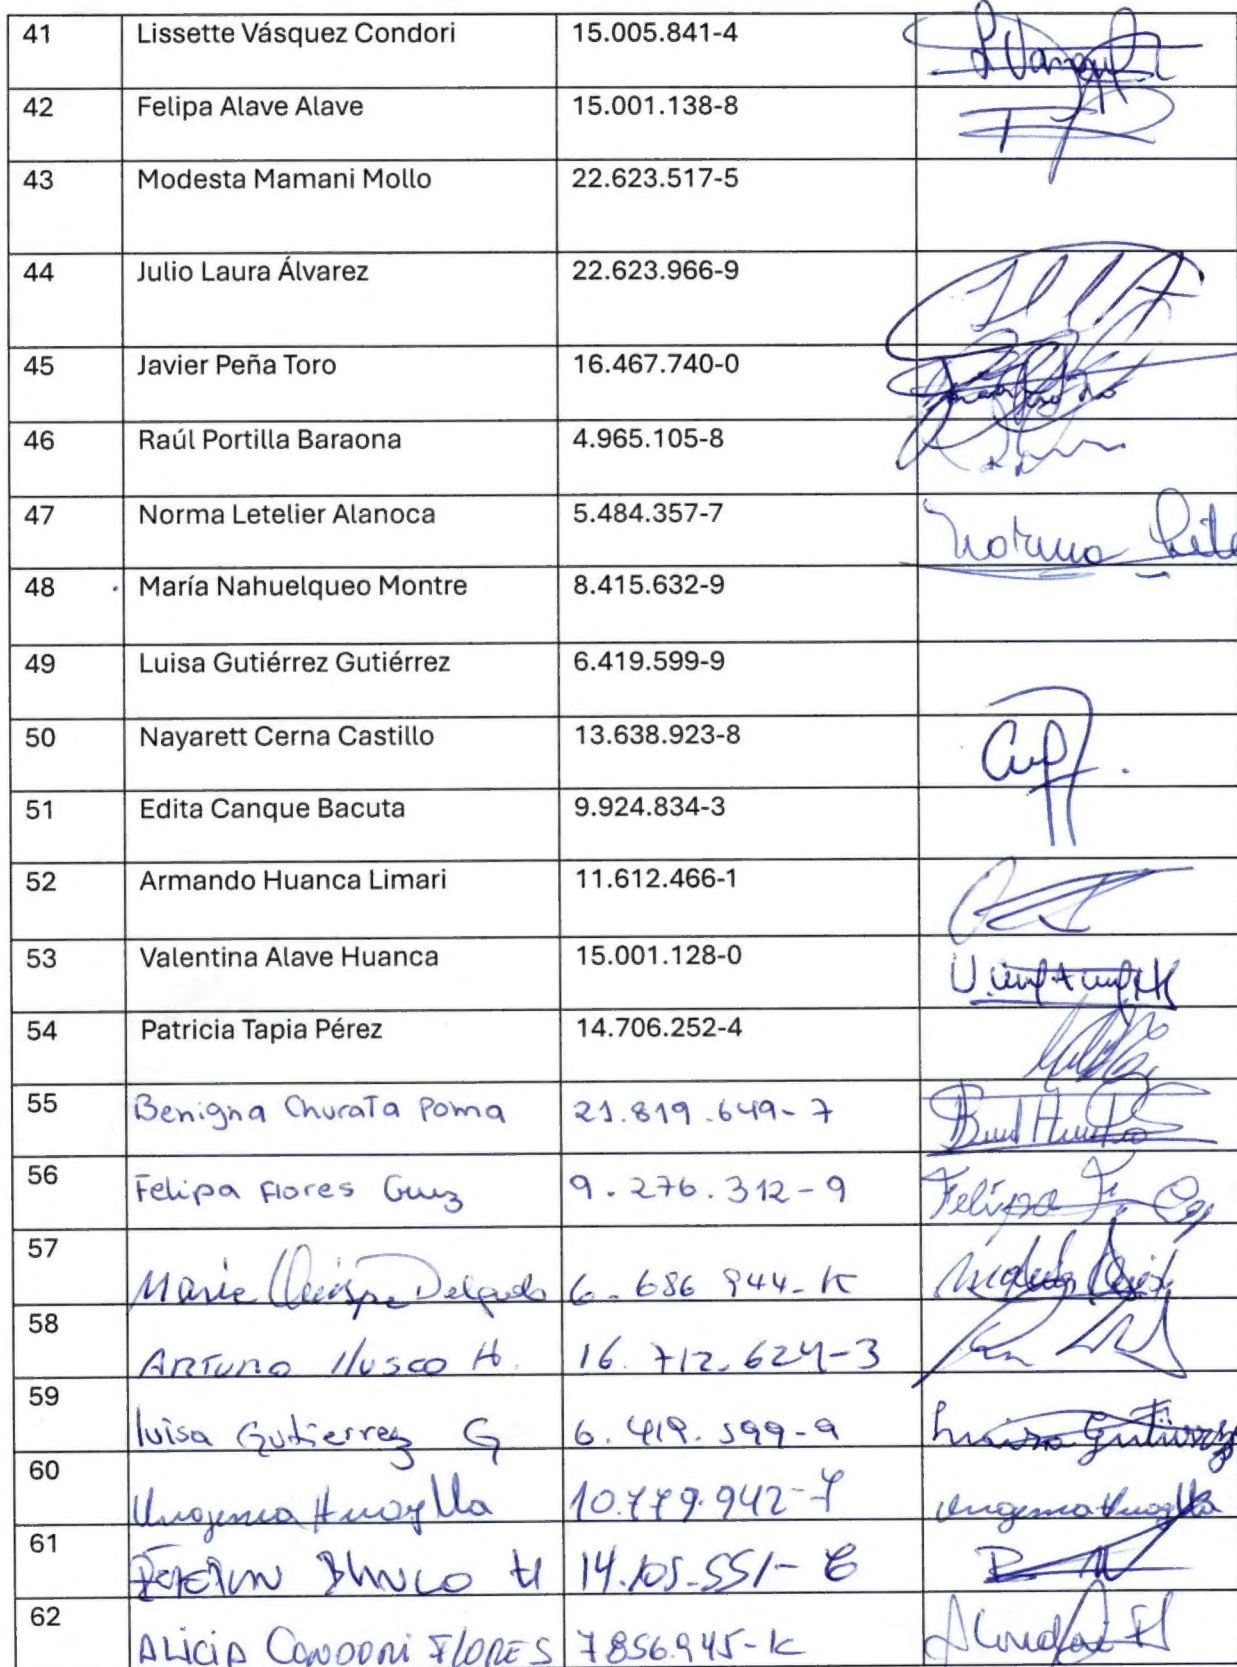 41 Lissette Vásquez Condori 15.005.841-4
42 Felipa Alave Alave 15.001.138-8
43 Modesta Mamani Mollo 22.623.517-5
44 Julio Laura Álvarez 22.623.966-9
45 Javier Peña Toro 16.467.740-0
46 Raúl Portilla Baraona 4.965.105-8
47 Norma Letelier Alanoca 5.484.357-7 Norma
48 María Nahuelqueo Montre 8.415.632-9
49 Luisa Gutiérrez Gutiérrez 6.419.599-9
50 Nayarett Cerna Castillo 13.638.923-8
51 Edita Canque Bacuta 9.924.834-3
52 Armando Huanca Limari 11.612.466-1
53 Valentina Alave Huanca 15.001.128-0
54 Patricia Tapia Pérez 14.706.252-4
55 Benigna Churata Poma 21.819.649-7
56 Felipa Flores 9.276.312-9 Felipa F.
57 Marie Quispe Delgado 6.686 944-K
58 ARTURO H. 16.712.624-3
59 luisa Gutierrez G 6.419.599-9 Luisa Gutierrez
60 10.779.942-7
61 14.105.551-
62 ALICIA CONDORI FLORES 7856.945-K